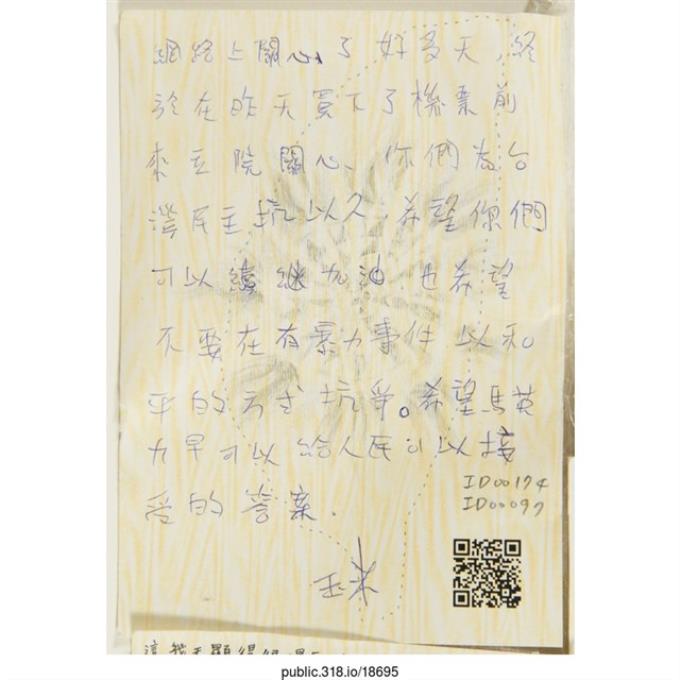 網路上關心了好多天,終
於在昨天買下了機票前
來立院關心、你們為台
灣民主抗以久,希望你們
可以續繼加油 也希望
不要在有暴力事件 以和
平的方式抗爭。希望馬英
九早可以給人民可以接
受的答案.
ID00174
ID00097
這 我
public.318.io/18695